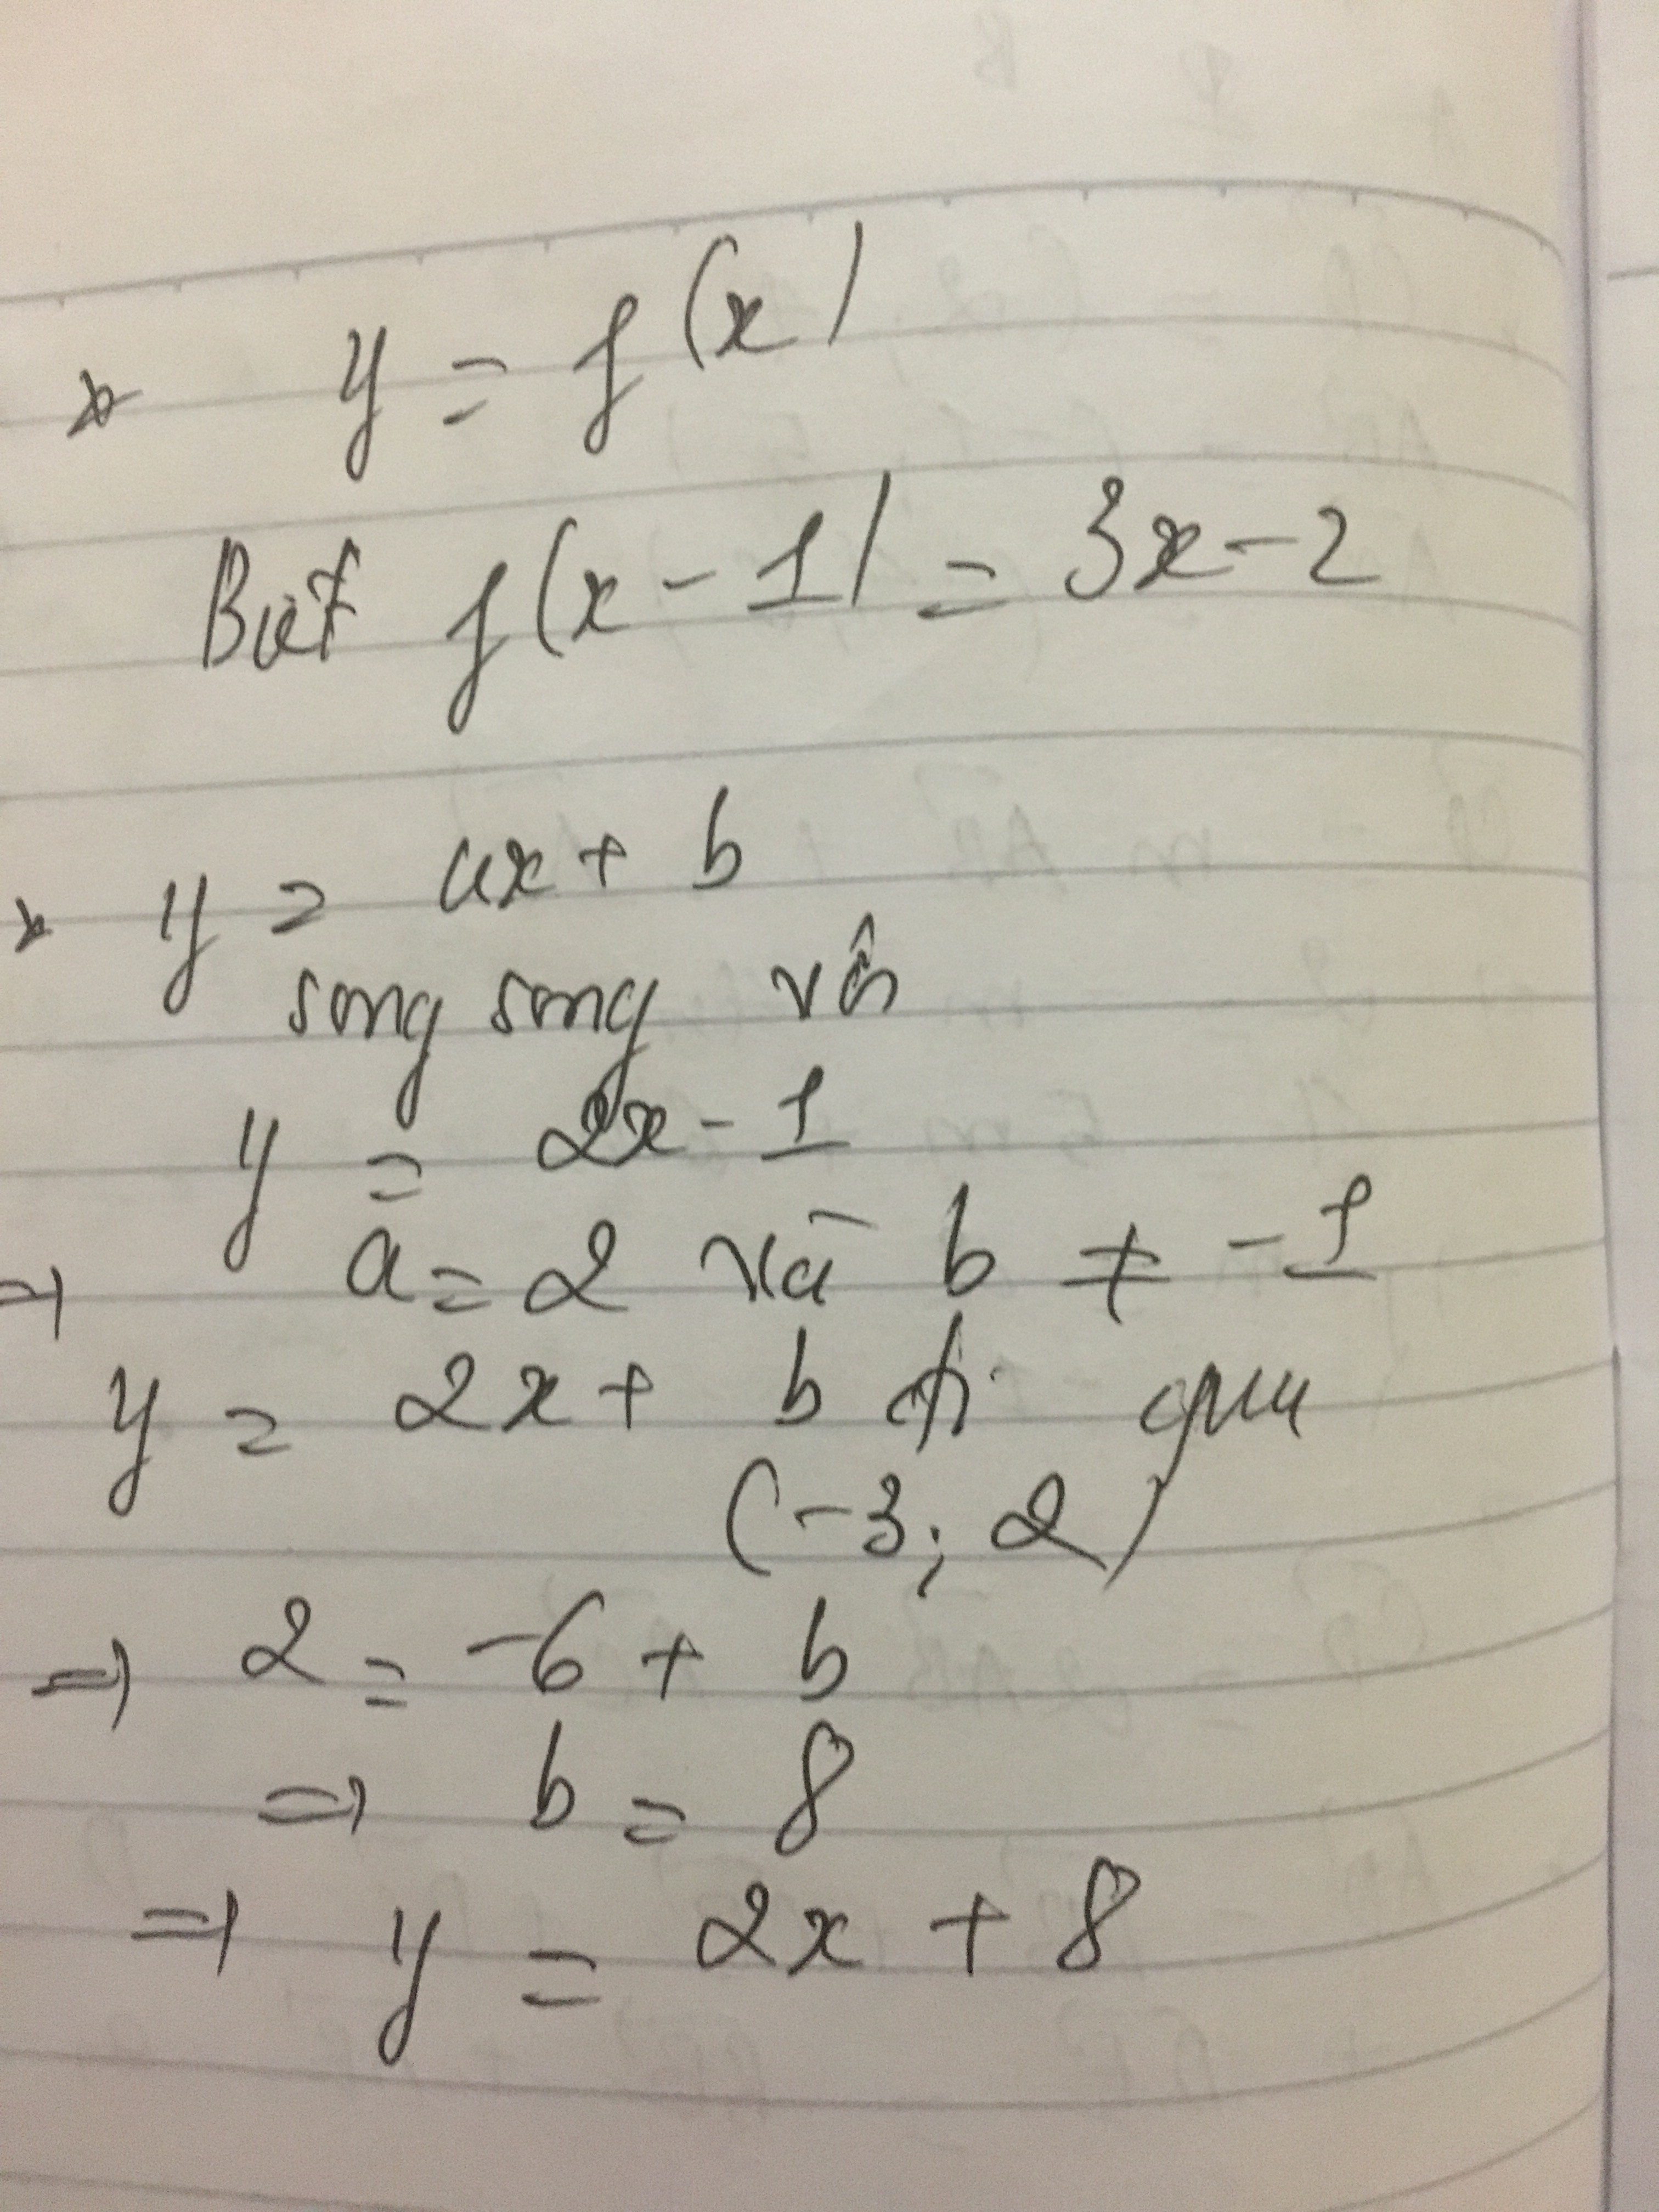 * y = f(x)
Biết f(x - 1) = 3x - 2
* y = ax + b
song song với
y = 2x - 1
=> a = 2 và b ≠ -1
y = 2x + b đi qua
(-3; 2)
=> 2 = -6 + b
=> b = 8
=> y = 2x + 8